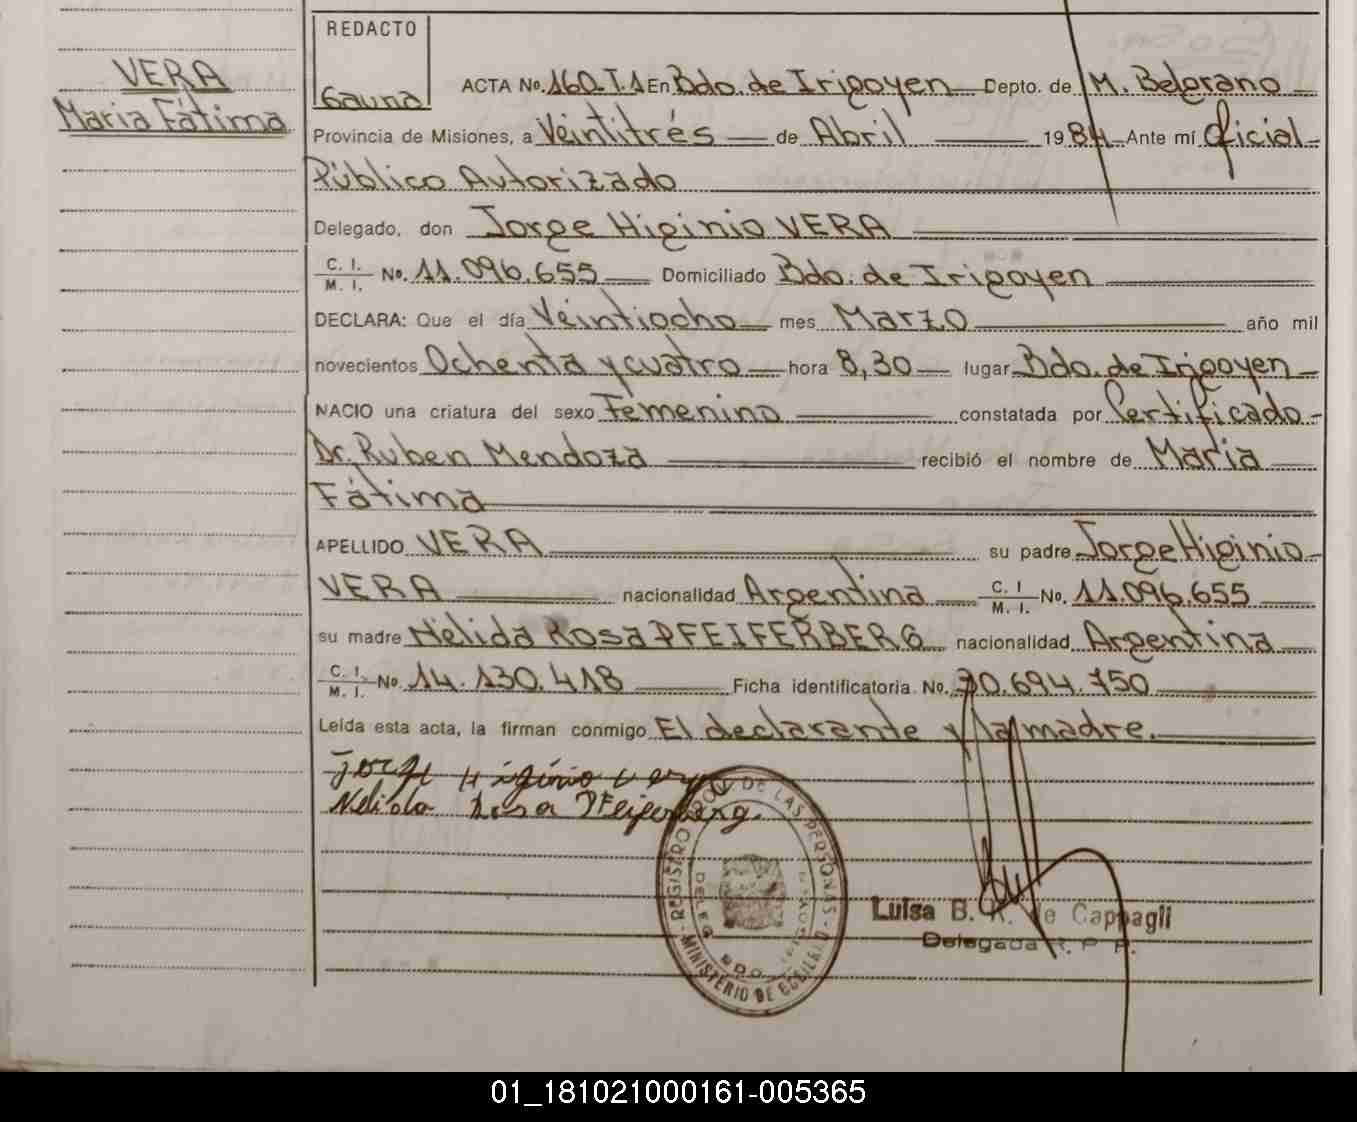 VERA
Maria Fátima
REDACTO
Gauna
ACTA No. 160-T.1 En Bdo. de Irigoyen Depto. de M. Belgrano
Provincia de Misiones, a Veintitrés de Abril 1984 Ante mí Oficial
Público Autorizado
Delegado, don Jorge Higinio VERA
C. I. M. I. No. 11.096.655 Domiciliado Bdo. de Irigoyen
DECLARA: Que el día Veintiocho mes Marzo año mil
novecientos Ochenta y cuatro hora 8,30 lugar Bdo. de Irigoyen
NACIO una criatura del sexo Femenino constatada por Certificado
Dr. Ruben Mendoza recibió el nombre de Maria
Fátima
APELLIDO VERA su padre Jorge Higinio
VERA nacionalidad Argentina C. I M. I. No. 11.096.655
su madre Nélida Rosa PFEIFERBERG nacionalidad Argentina
C. I. M. I. No. 14.130.418 Ficha identificatoria No. 30.694.750
Leída esta acta, la firman conmigo El declarante y la madre.
Jorge Higinio Vera
Nelida Rosa Pfeiferberg.
REGISTRO DE LAS PERSONAS - MINISTERIO DE GOBIERNO
DELEG BDO
Luisa B. K. de Cappagli
Delegada R. P. P.
01_181021000161-005365